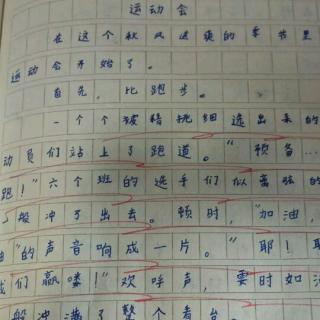 运动会
在这个秋风送爽的季节里
运动会开始了。
首先，比跑步。
一个个被精挑细选出来的
动员们站上了跑道。“预备…
跑！”六个班的选手们似离弦的
一般冲了出去。顿时，“加油，
油”的声音响成一片。“耶！耶
我们赢喽！”欢呼声，霎时如
般冲满了整个看台。